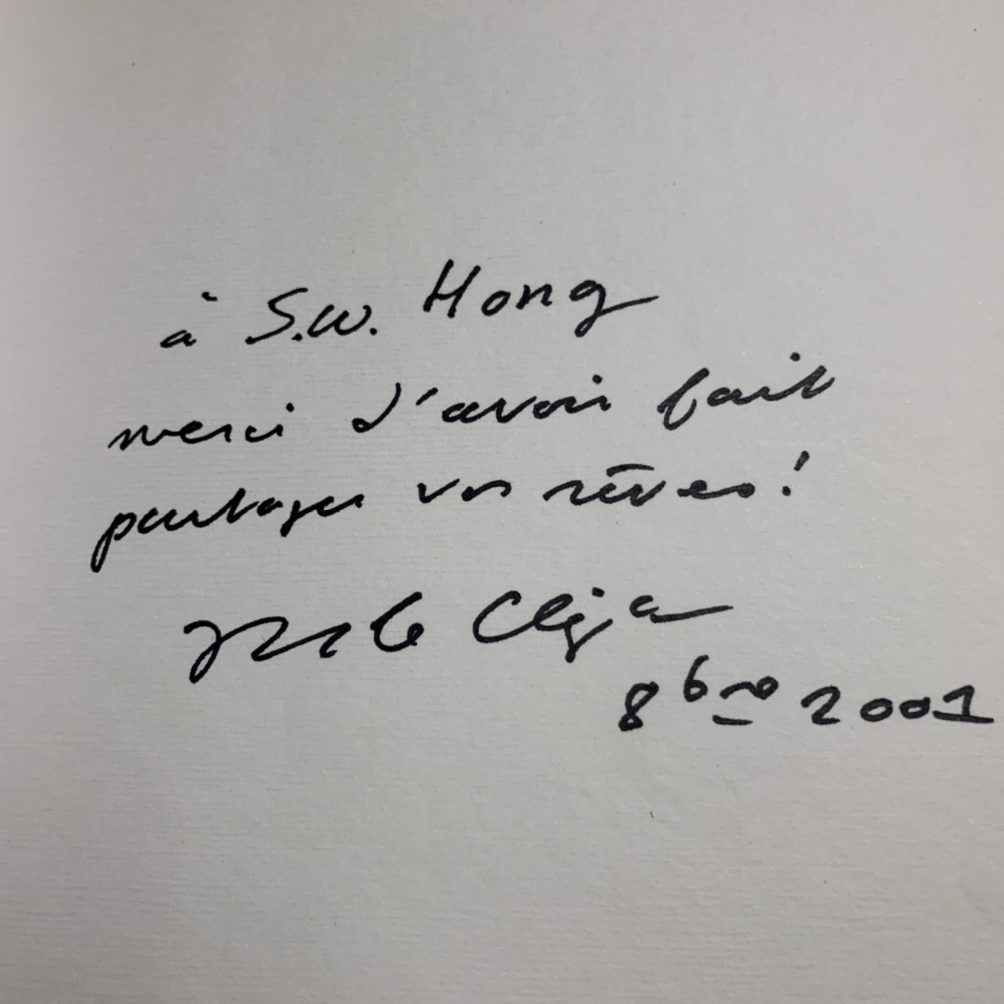 à S.W. Hong
merci d'avoir fait
partager vos rêves!
8bre 2001